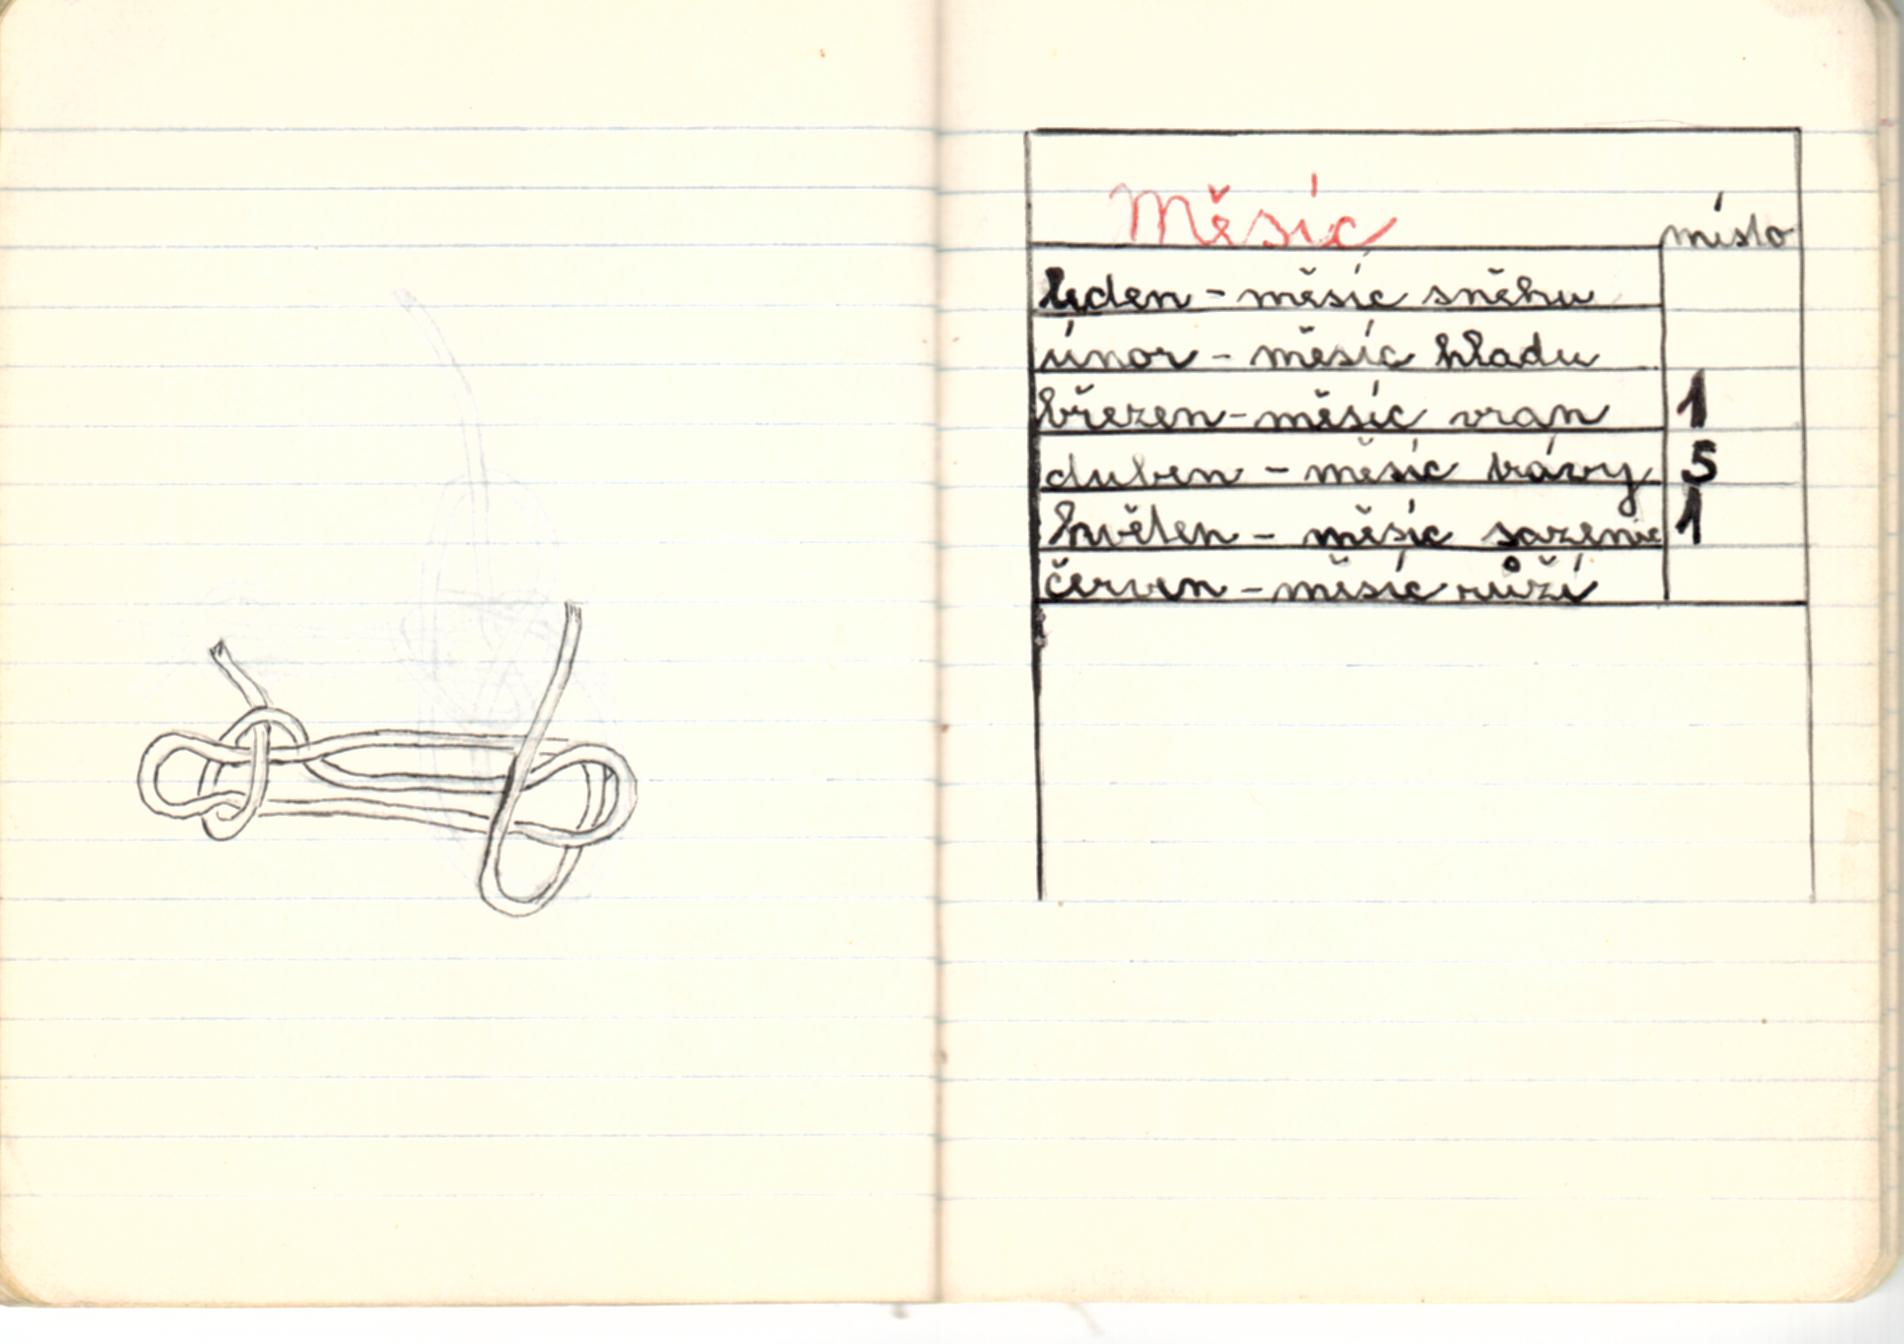 Měsíc místo
leden - měsíc sněhu
únor - měsíc hladu
březen - měsíc vran 1
duben - měsíc trávy 5
květen - měsíc sazenic 1
červen - měsíc růží